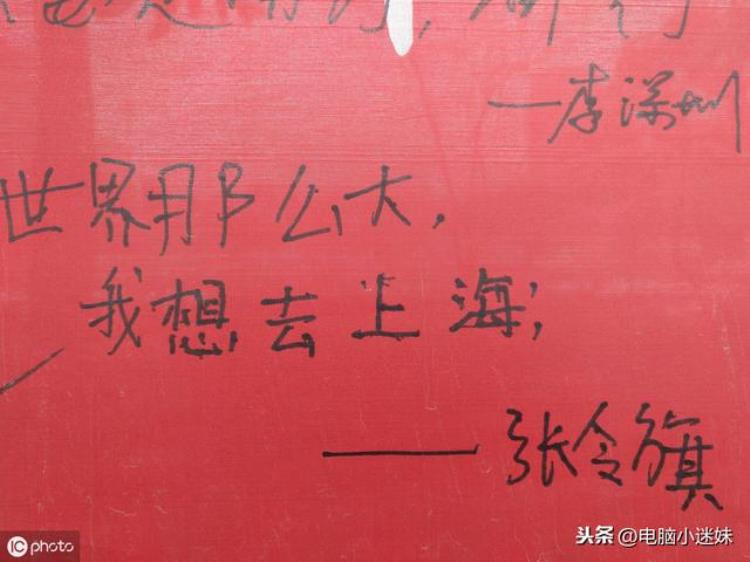 —李深圳
世界那么大,
我想去上海;
——张令旗
iC photo
头条 @电脑小迷妹